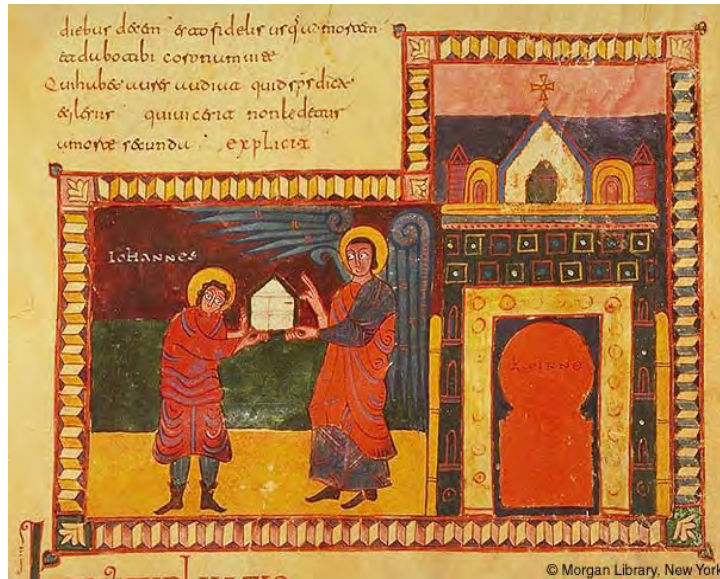 diebus decem esto fidelis usq ad mortem
et dabo tibi coronam uite
Qui habet aurem audiat quid sps dicat
eclesiis qui uicerit non ledetur
a morte secunda explicit
IOHANNES
© Morgan Library, New York